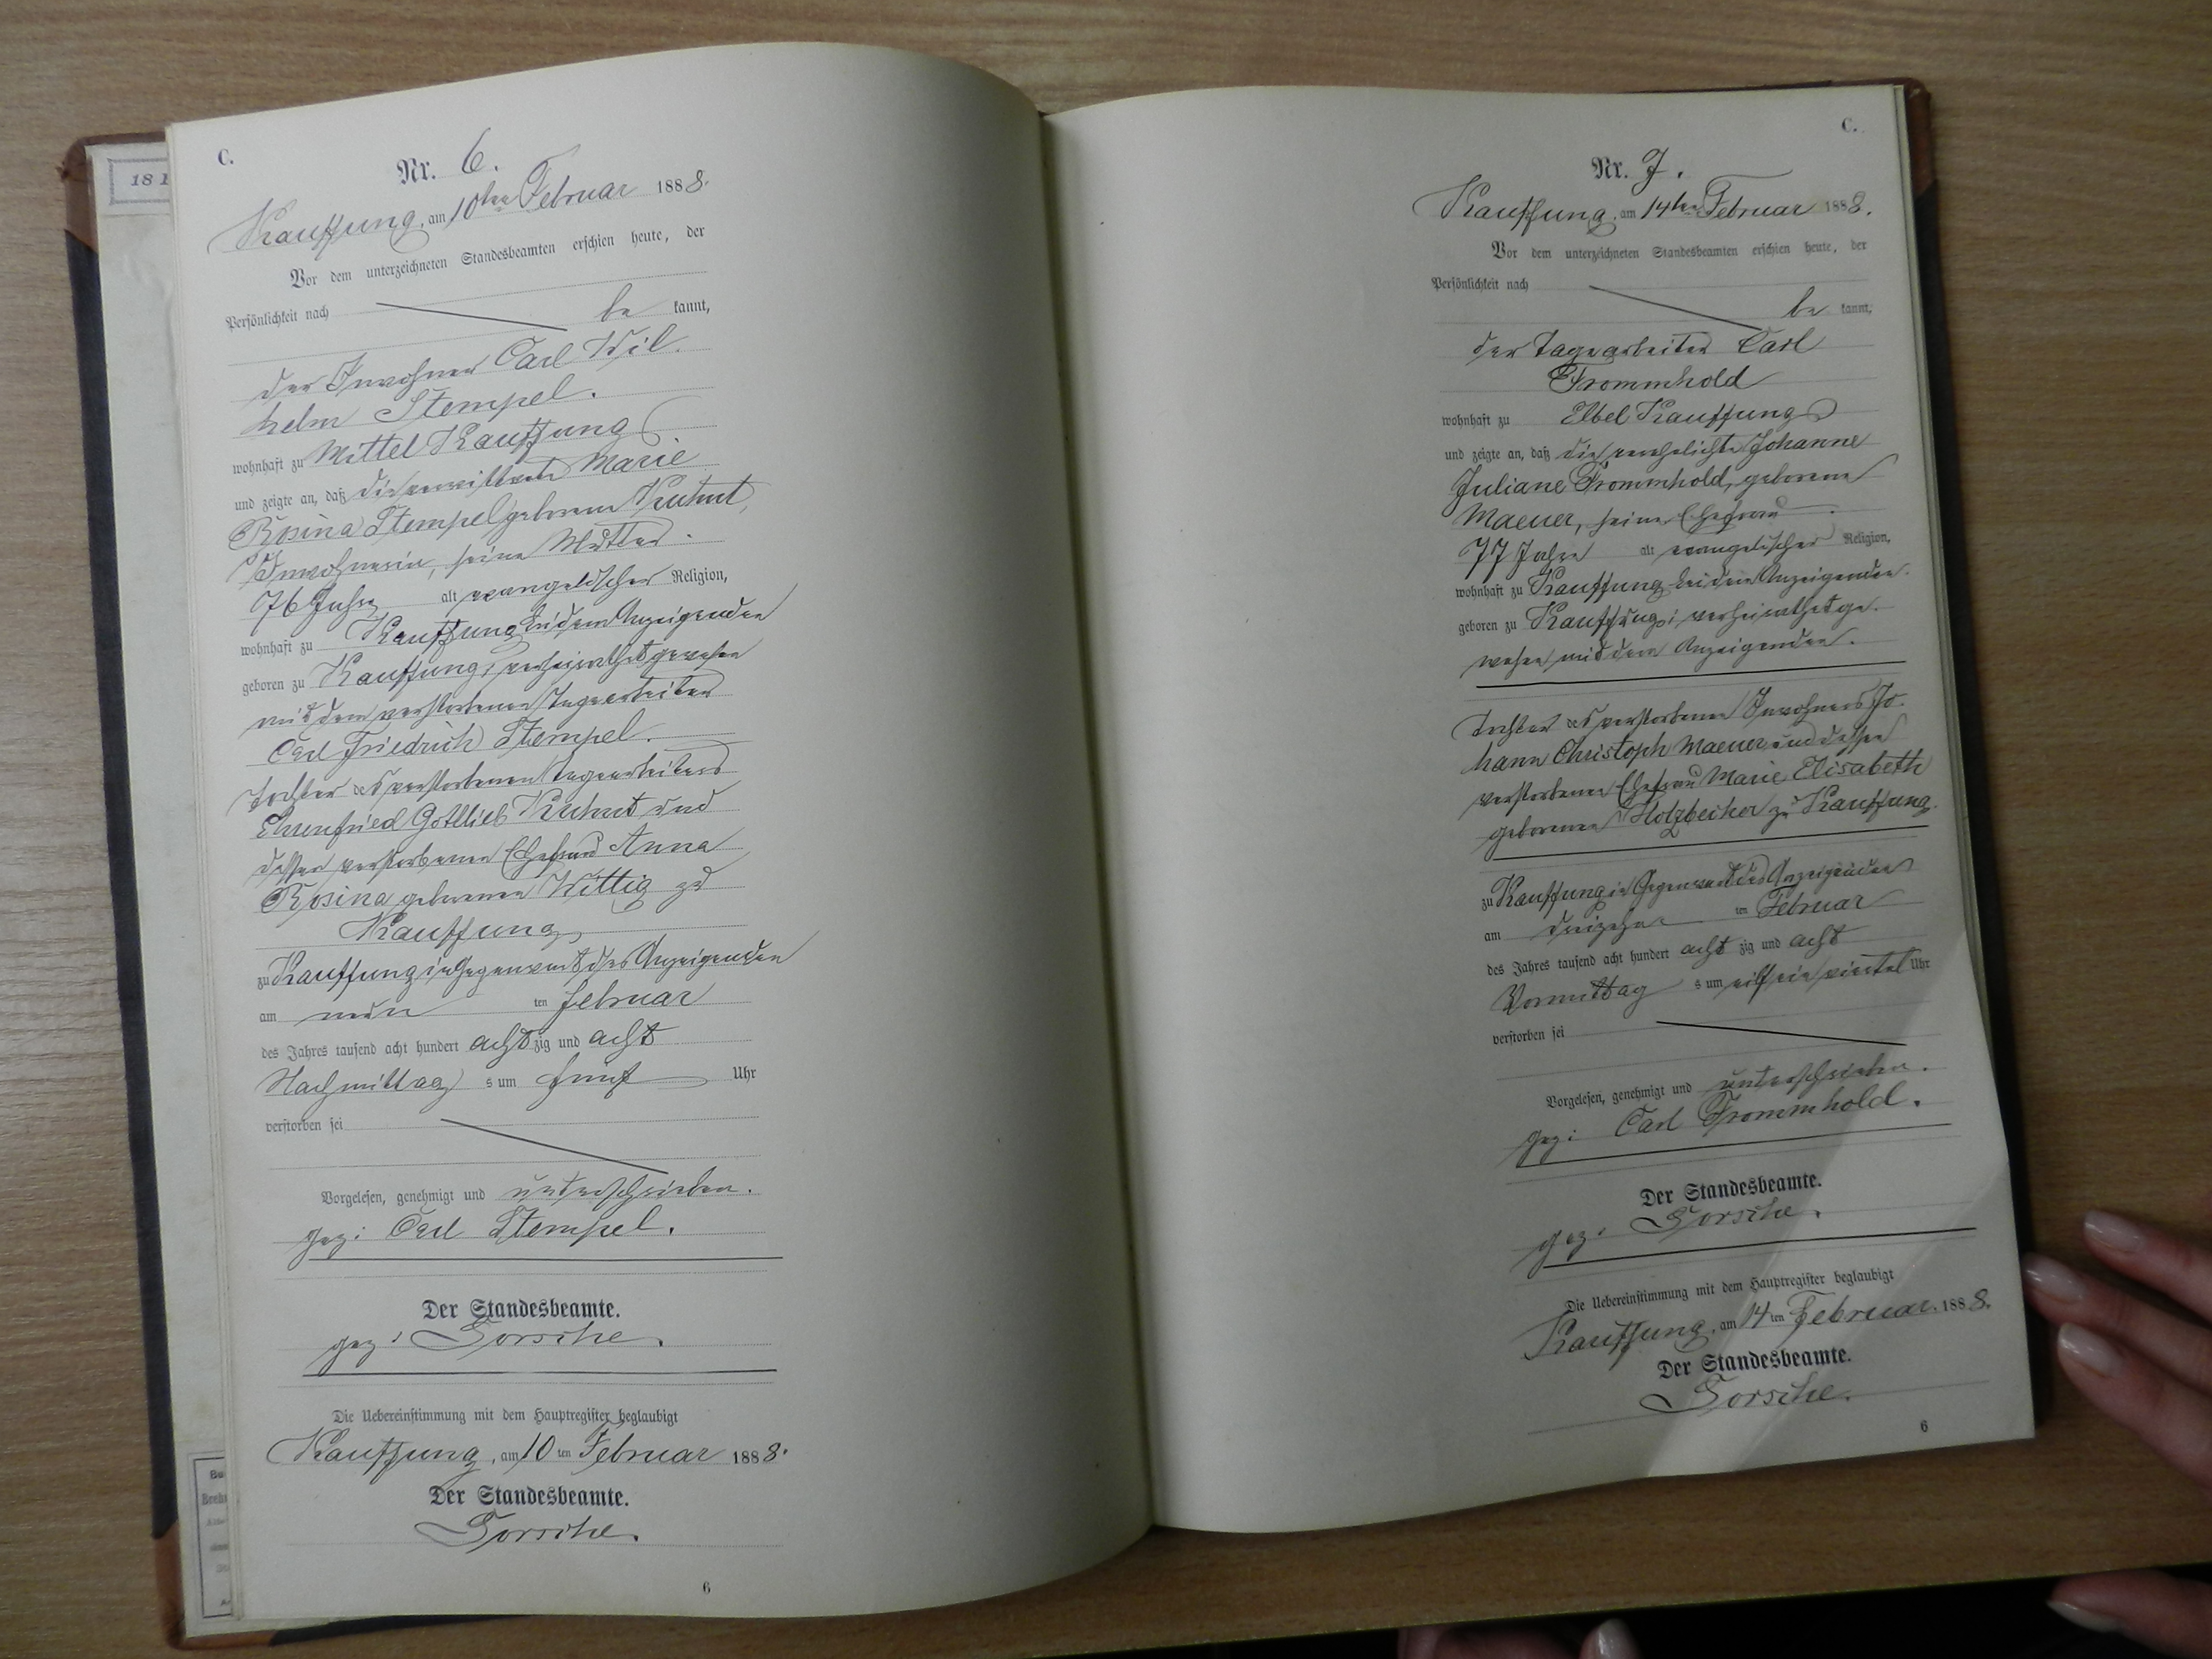 18 1
C.
Nr. 6.
Kauffung, am 10ten Februar 1888.
Vor dem unterzeichneten Standesbeamten erschien heute, der
Persönlichkeit nach
be kannt,
der Inwohner Carl Wil-
helm Stempel.
wohnhaft zu Mittel Kauffung
und zeigte an, daß die verwittwete Marie
Rosina Stempel geborene Kuhnt,
Inwohnerin, seine Mutter.
76 Jahre alt evangelischer Religion,
wohnhaft zu Kauffung bei dem Anzeigenden
geboren zu Kauffung, verheirathet gewesen
mit dem verstorbenen Tagearbeiter
Carl Friedrich Stempel.
Tochter des verstorbenen Tagearbeiters
Ehrenfried Gottlieb Kuhnt und
dessen verstorbenen Ehefrau Anna
Rosina geborenen Wittig zu
Kauffung
zu Kauffung in Gegenwart des Anzeigenden
am neun ten Februar
des Jahres tausend acht hundert acht zig und acht
Nachmittag s um fünf Uhr
verstorben sei
Vorgelesen, genehmigt und unterschrieben.
gez: Carl Stempel.
Der Standesbeamte.
gez: Gorsche.
Die Uebereinstimmung mit dem Hauptregister beglaubigt
Kauffung, am 10 ten Februar 1888.
Der Standesbeamte.
Gorsche.
6
C.
Nr. 7.
Kauffung, am 14ten Februar 1888.
Vor dem unterzeichneten Standesbeamten erschien heute, der
Persönlichkeit nach
be kannt,
der Tagearbeiter Carl
Frommhold
wohnhaft zu Elbel Kauffung
und zeigte an, daß die verehelichte Johanne
Juliane Frommhold, geborene
Maeuer, seine Ehefrau
77 Jahre alt evangelischer Religion,
wohnhaft zu Kauffung bei dem Anzeigenden
geboren zu Kauffung; verheirathet ge-
wesen mit dem Anzeigenden.
Tochter des verstorbenen Inwohners Jo-
hann Christoph Maeuer und dessen
verstorbenen Ehefrau Marie Elisabeth
geborenen Holzbecher zu Kauffung.
zu Kauffung in Gegenwart des Anzeigenden
am dreizehn ten Februar
des Jahres tausend acht hundert acht zig und acht
Vormittag s um eilf ein viertel Uhr
verstorben sei
Vorgelesen, genehmigt und unterschrieben.
gez: Carl Frommhold.
Der Standesbeamte.
gez: Gorsche.
Die Uebereinstimmung mit dem Hauptregister beglaubigt
Kauffung, am 14 ten Februar 1888.
Der Standesbeamte.
Gorsche.
6